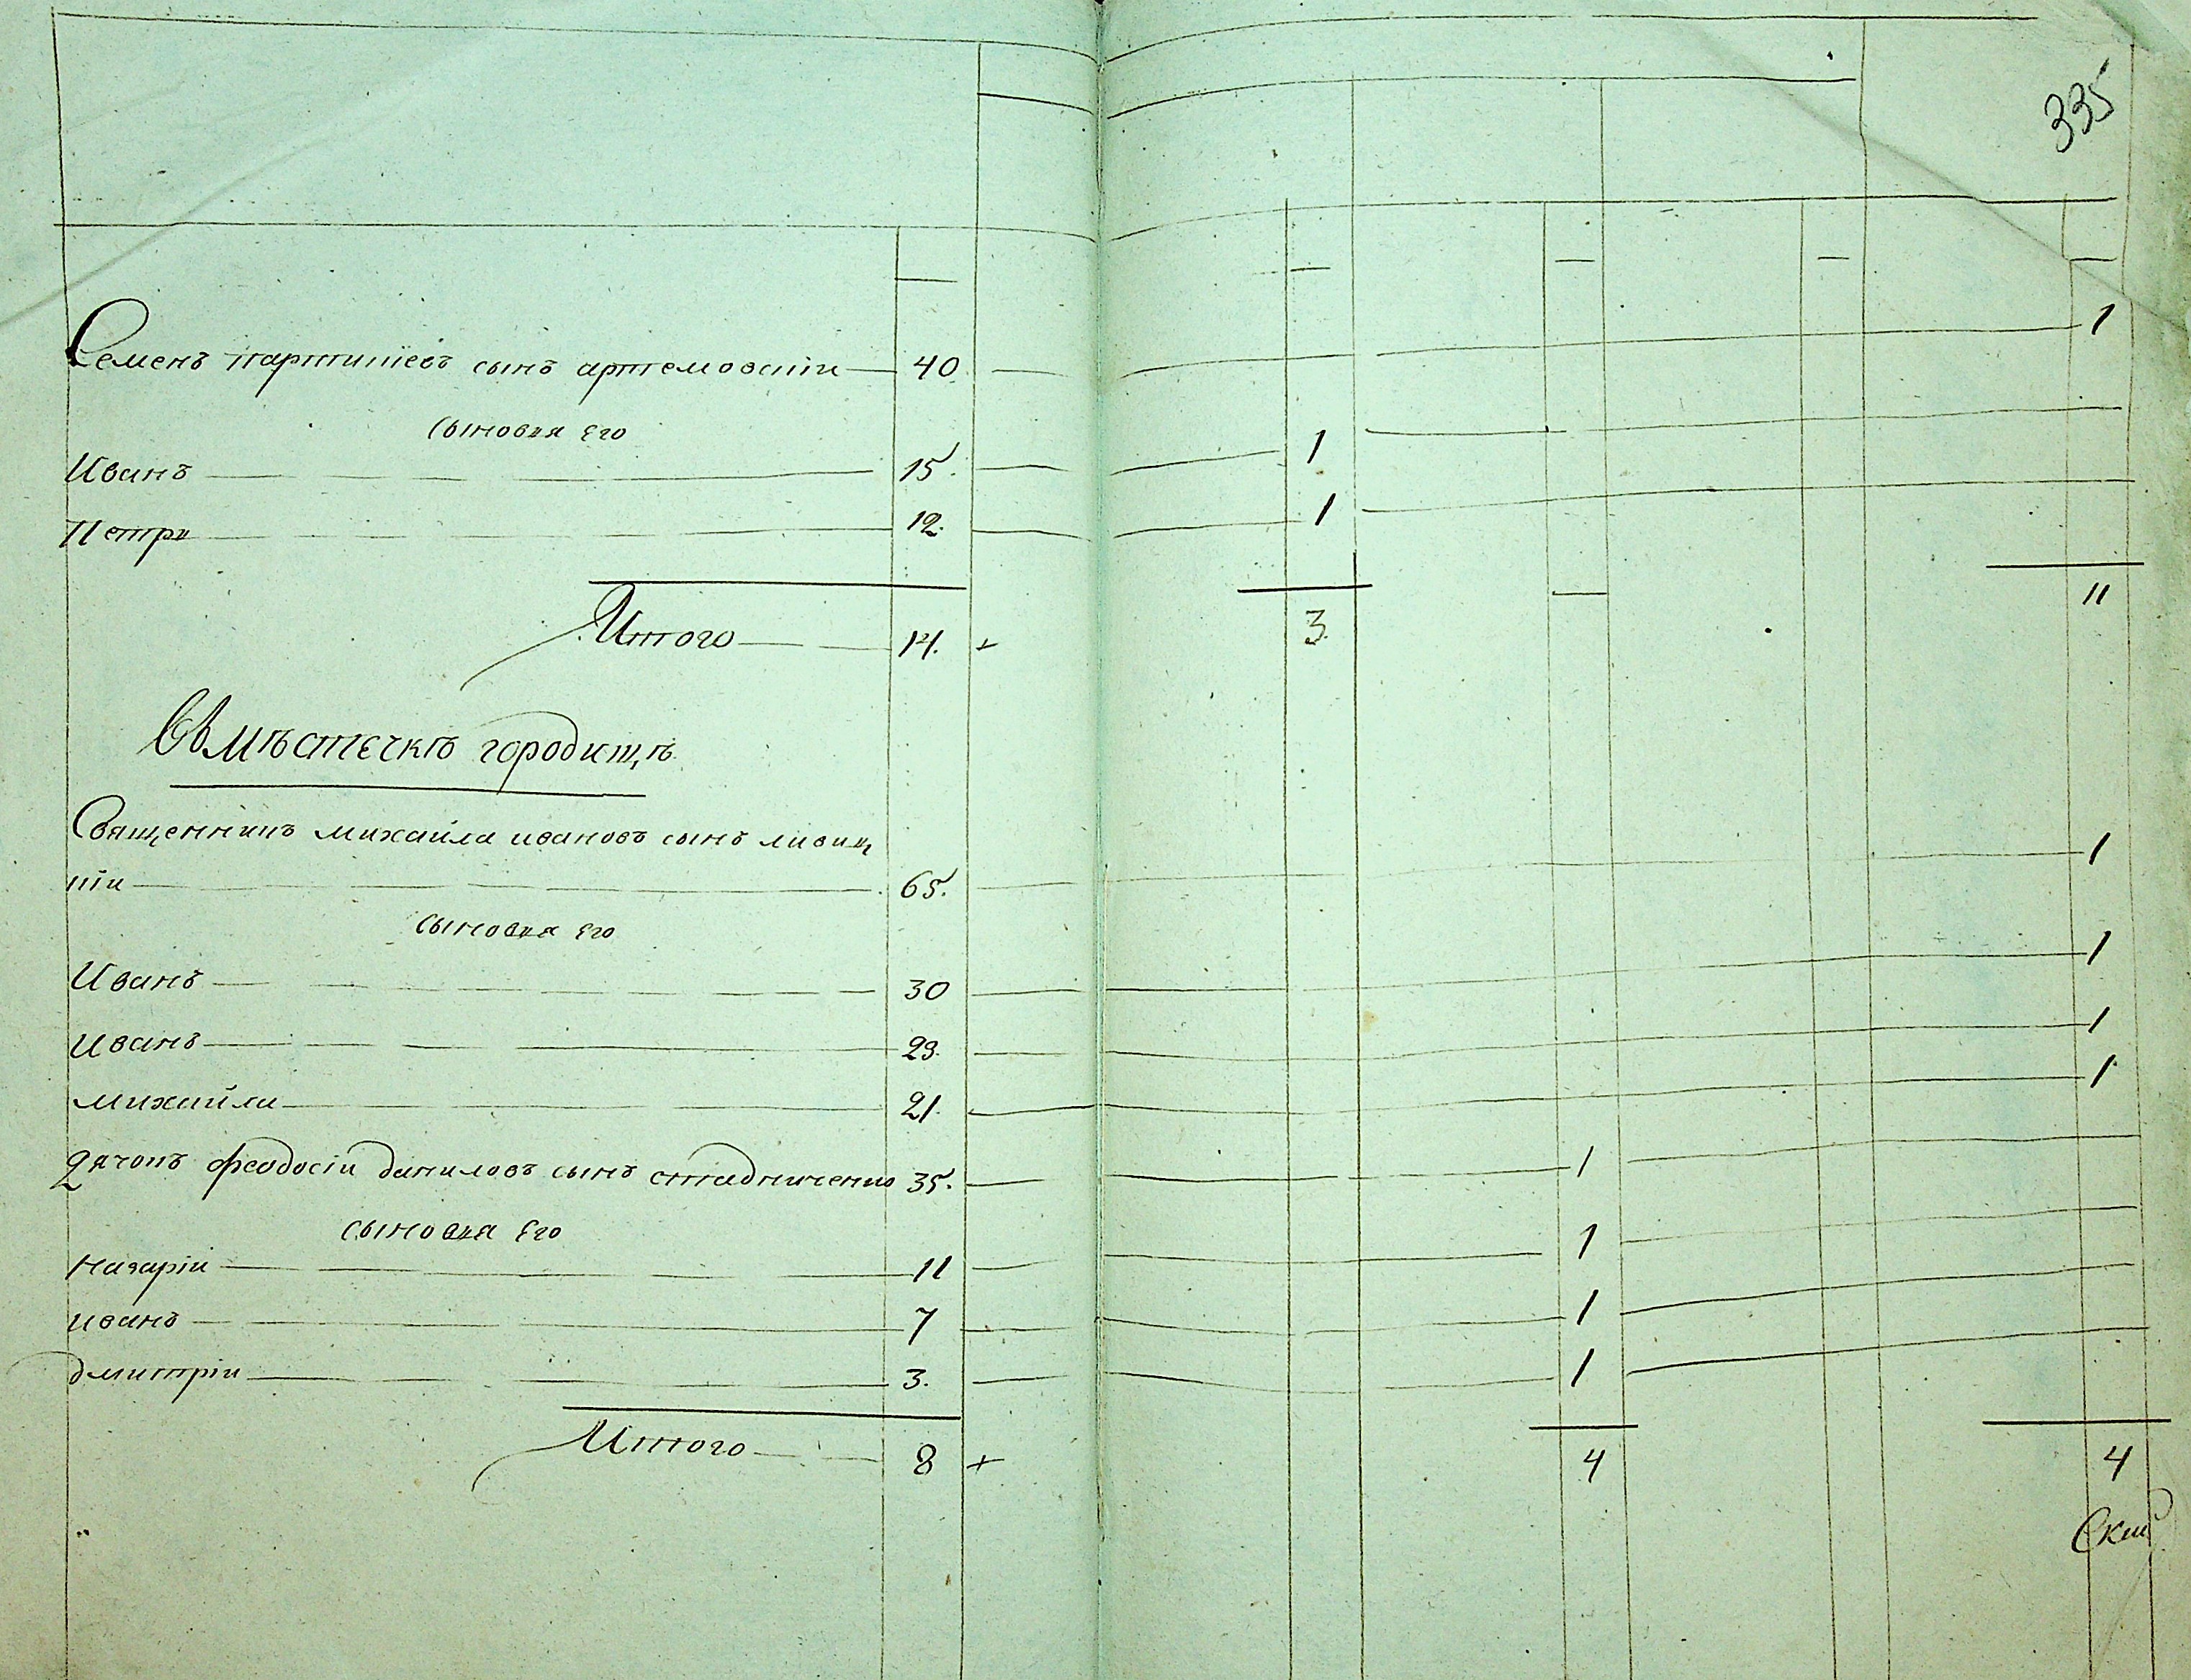 335
Семенъ партииевъ сынъ артемовскiи 40 1
сыновья его
Иванъ 15 1
Петръ 12. 1
Итого 14. + 3. 11
Въ мѣстечкѣ городищѣ
Священникъ михайла ивановъ сынъ ливиц
кiи 65. 1
сыновья его
Иванъ 30 1
иванъ 29. 1
михайла 21. 1
Дячокъ феодосiи даниловъ сынъ стадниченко 35. 1
сыновья его
Назарiи 11 1
иванъ 7 1
дмитрiи 3. 1
Итого 8 + 4 4